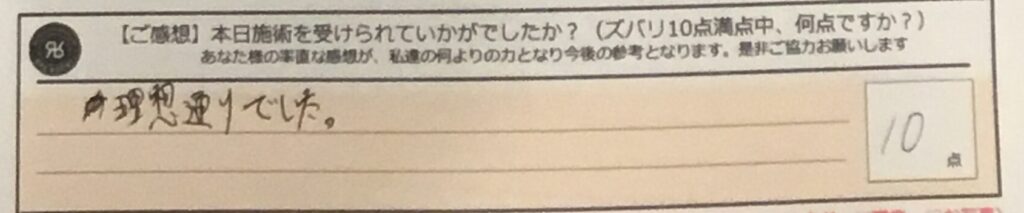 【ご感想】本日施術を受けられていかがでしたか?(ズバリ10点満点中、何点ですか?)
あなた様の率直な感想が、私達の何よりの力となり今後の参考となります。是非ご協力お願いします
理想通りでした。
10
点